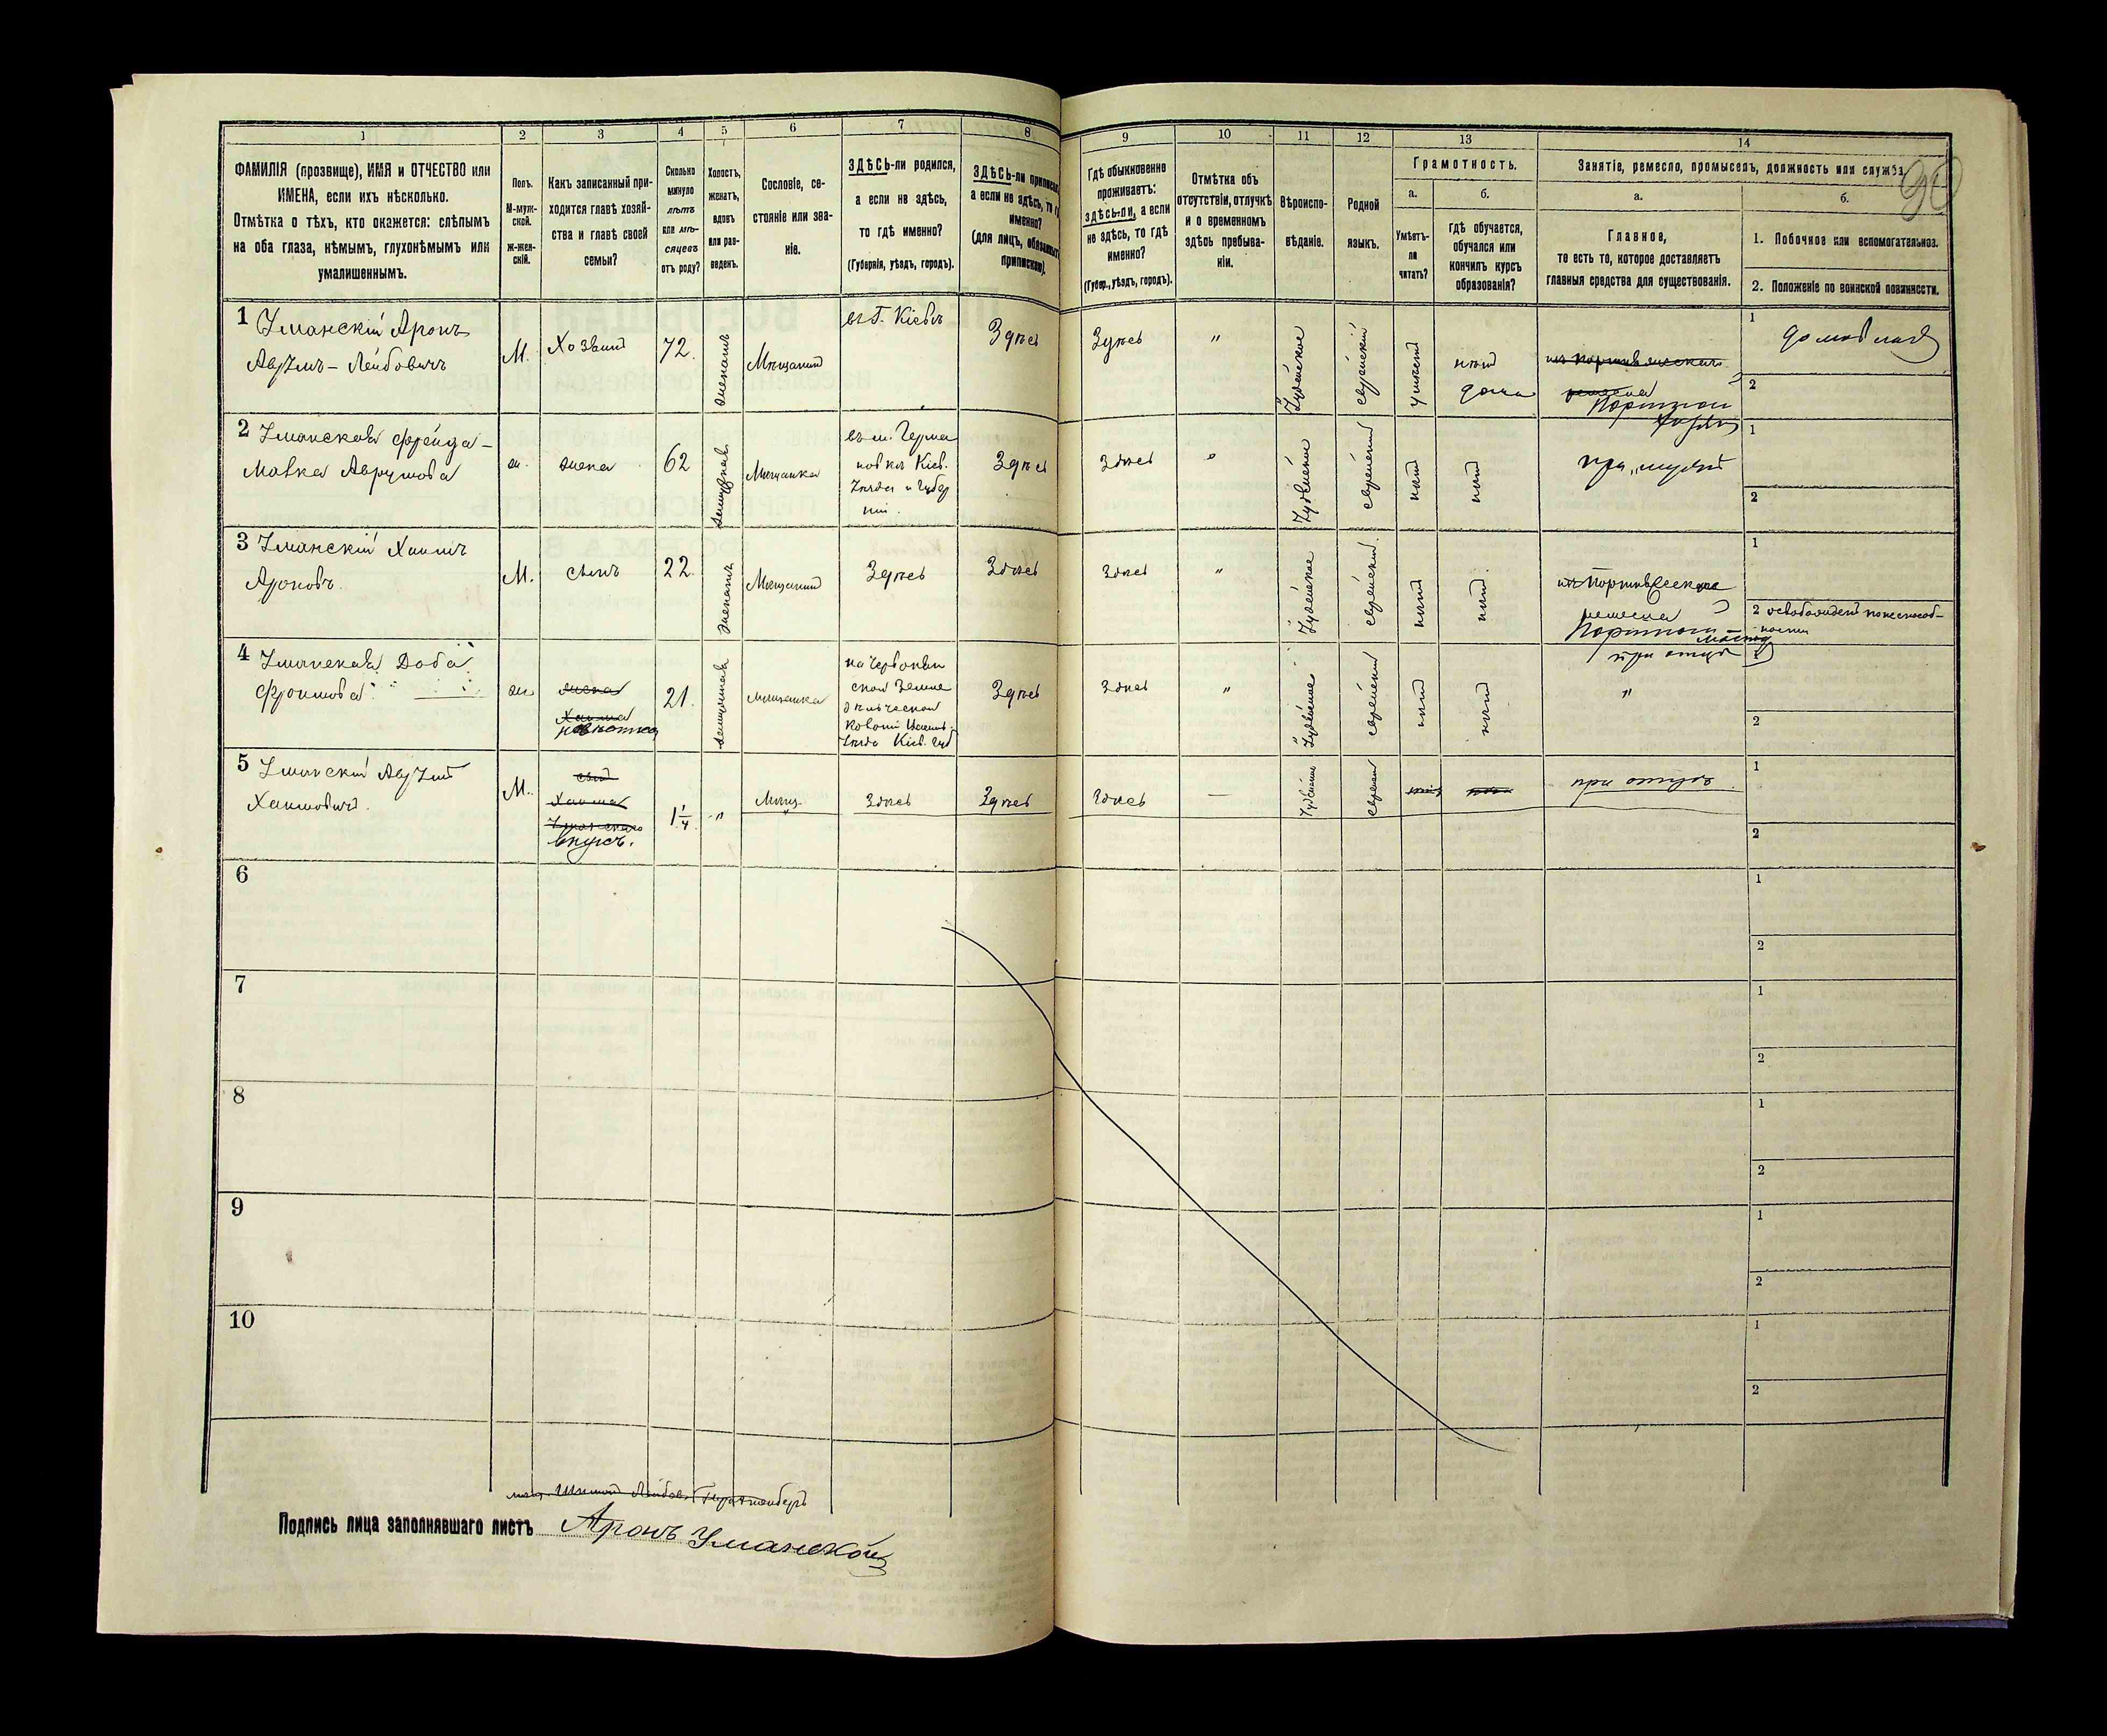 1 2 3 4 5 6 7 8 9 10 11 12 13 14
ФАМИЛІЯ (прозвище), ИМЯ и ОТЧЕСТВО или
ИМЕНА, если ихъ нѣсколько.
Отмѣтка о тѣхъ, кто окажется: слѣпымъ
на оба глаза, нѣмымъ, глухонѣмымъ или
умалишеннымъ.
Полъ.
М-муж-
ской.
Ж-жен-
скій.
Какъ записанный при-
ходится главѣ хозяй-
ства и главѣ своей
семьи?
Сколько
минуло
лѣтъ
или мѣ-
сяцевъ
отъ роду?
Холостъ,
женатъ,
вдовъ
или раз-
веденъ.
Сословіе, со-
стояніе или зва-
ніе.
ЗДѢСЬ-ли родился,
а если не здѣсь,
то гдѣ именно?
(Губернія, уѣздъ, городъ).
ЗДѢСЬ-ли приписанъ,
а если не здѣсь, то гдѣ
именно?
(для лицъ, обязанныхъ
припискою).
Гдѣ обыкновенно
проживаетъ:
здѣсь-ли, а если
не здѣсь, то гдѣ
именно?
(Губер., уѣздъ, городъ).
Отмѣтка объ
отсутствіи, отлучкѣ
и о временномъ
здѣсь пребыва-
ніи.
Вѣроиспо-
вѣданіе.
Родной
языкъ.
Грамотность.
а.
Умѣетъ-
ли
читать?
б.
гдѣ обучается,
обучался или
кончилъ курсъ
образованія?
Занятіе, ремесло, промыселъ, должность или служба.
а.
Главное,
то есть то, которое доставляетъ
главныя средства для существованія.
б.
1. Побочное или вспомогательное.
2. Положеніе по воинской повинности.
90
1 Уманскій Аронъ
Аврумъ-Лейбовичъ
М.
Хозяинъ
72.
женатъ
Мѣщанинъ
въ Г. Кіевѣ
Здѣсь
Здѣсь
"
Іудейское
еврейскій
умѣетъ
дома
Портной
1 домовлад
2
2 Уманская Фрейда-
Мавка Аврумова
ж.
жена
62
замужняя
Мѣщанка
въ м. Герма
новкѣ Кіев.
Уѣзда и Губер
ніи.
Здѣсь
Здѣсь
"
Іудейское
еврейскій
нѣтъ
нѣтъ
при мужѣ
1
2
3 Уманскій Хаимъ
Ароновъ.
М.
сынъ
22.
женатъ
Мѣщанинъ
Здѣсь
Здѣсь
Здѣсь
"
Іудейское
еврейскій
нѣтъ
нѣтъ
ремесла
Портной
1
2
4 Уманская Доба
Фроимова
ж
жена
Хаима
невѣстка
21.
замужняя
мѣщанка
Уѣзда Кіев. губ
Здѣсь
Здѣсь
"
Іудейское
еврейскій
нѣтъ
нѣтъ
при отцѣ
"
1
2
5 Уманскій Аврумъ
Хаимовичъ.
М.
сынъ
Хаима
Уманскаго
внукъ.
1 1/4
"
Мѣщ.
Здѣсь
Здѣсь
Здѣсь
—
Іудейское
еврейскій
при отцѣ
1
2
6
1
2
7
1
2
8
1
2
9
1
2
10
1
2
Подпись лица заполнявшаго листъ Аронъ Уманской